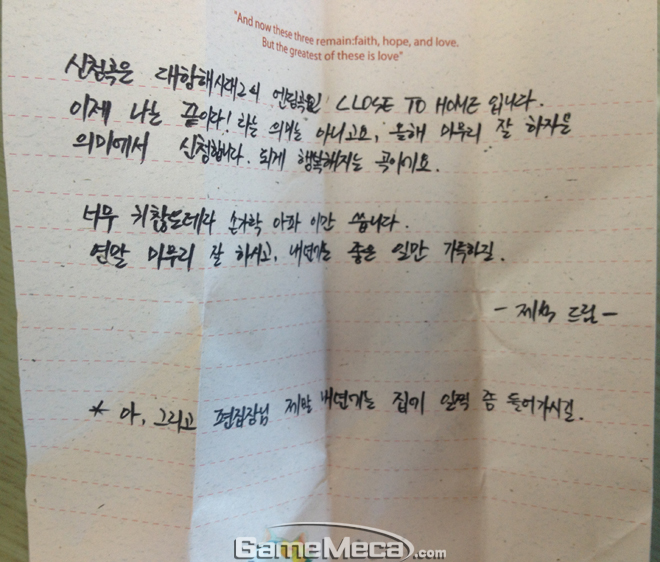 "And now these three remain:faith, hope, and love.
But the greatest of these is love"
신청곡은 대항해시대2의 엔딩곡인 CLOSE TO HOME 입니다.
이제 나는 끝이다! 라는 의미는 아니고요, 올해 마무리 잘 하자는
의미에서 신청합니다. 되게 행복해지는 곡이기요.
너무 귀찮도레라 손가락 아파 이만 씁니다.
연말 마무리 잘 하시고, 내년에는 좋은 일만 가득하길.
- 드림 -
* 아, 그리고 편집장님 제발 내년에는 집에 일찍 좀 들어가시길.
GameMeca.com